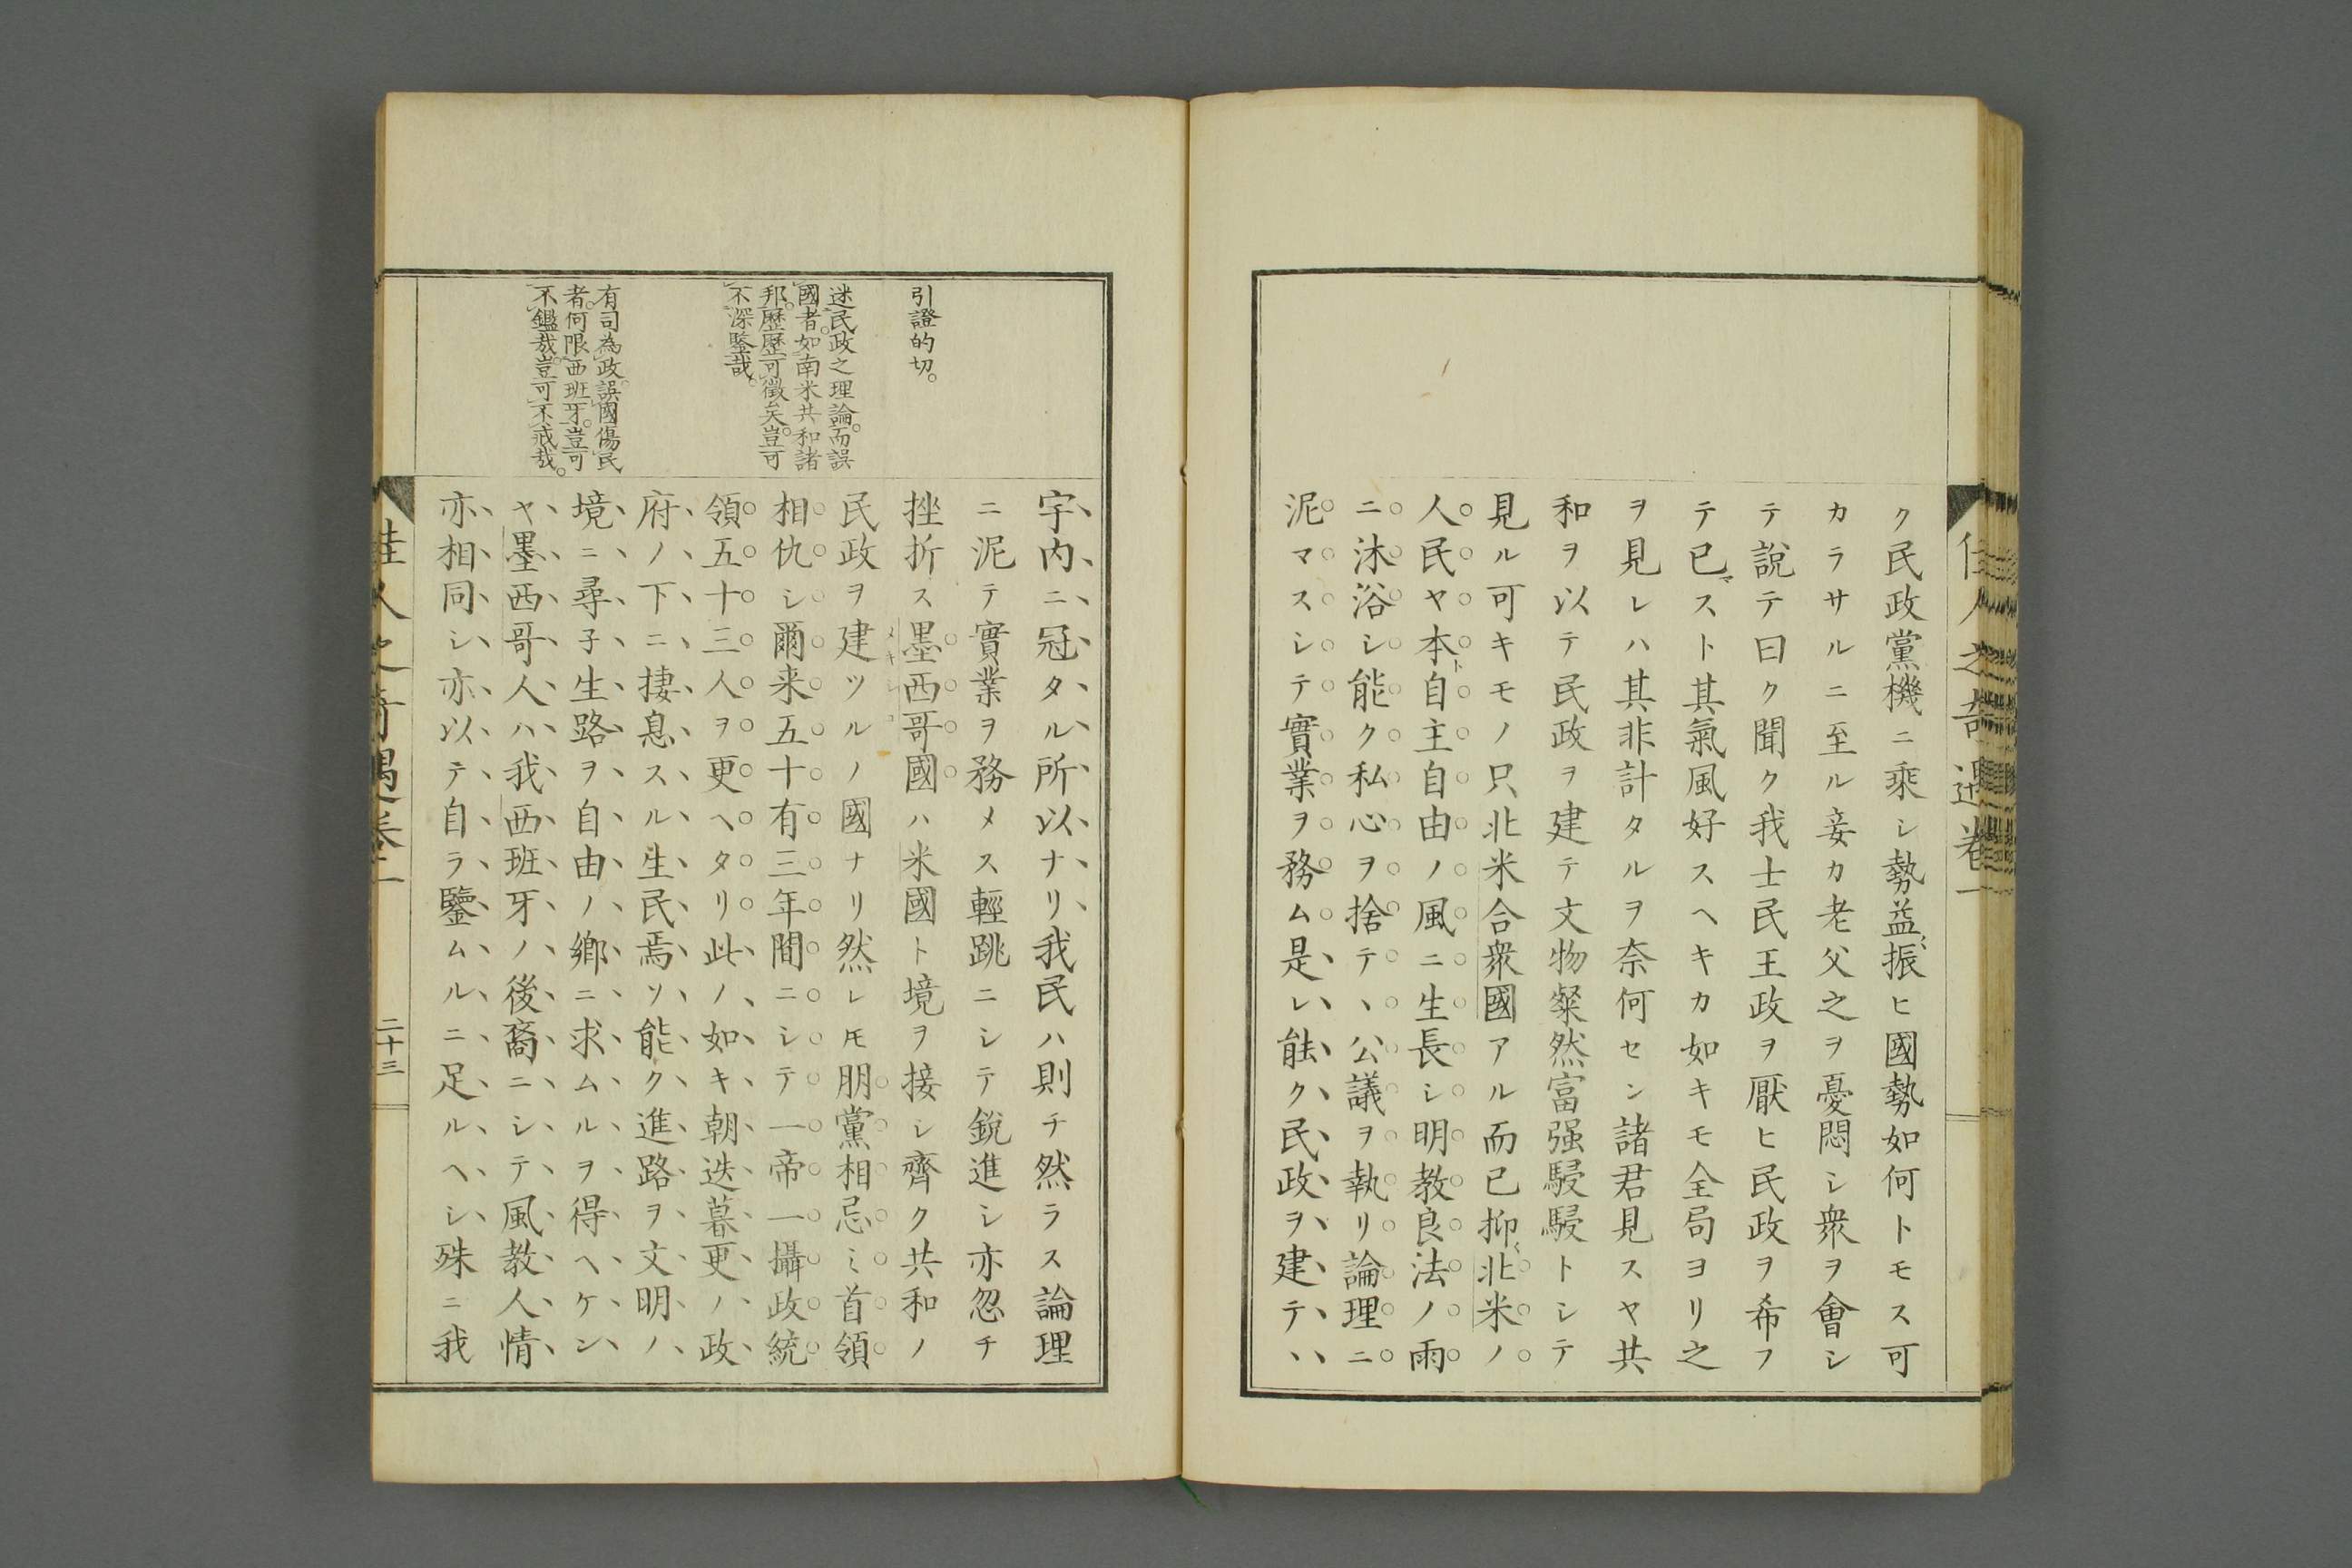 佳人之奇遇卷一
ク民政黨機ニ乘シ勢益〻振ヒ國勢如何トモス可
カラサルニ至ル妾カ老父之ヲ憂悶シ衆ヲ會シ
テ說テ曰ク聞ク我士民王政ヲ厭ヒ民政ヲ希フ
テ已マスト其氣風好スヘキカ如キモ全局ヨリ之
ヲ見レハ其非計タルヲ奈何セン諸君見スヤ共
和ヲ以テ民政ヲ建テ文物粲然富强駸駸トシテ
見ル可キモノ只北米合衆國アル而已抑〻北米ノ
人民ヤ本ト自主自由ノ風ニ生長シ明教良法ノ雨
ニ沐浴シ能ク私心ヲ捨テ、公議ヲ執リ論理ニ
泥マスシテ實業ヲ務ム是レ能ク民政ヲ建テ、
引證的切。
迷民政之理論。而誤
國者。如南米共和諸
邦。歷歷可徵矣。豈可
不深鑒哉。
有司為政。誤國傷民
者。何限西班牙。豈可
不鑑哉。豈可不戒哉。
宇内ニ冠タル所以ナリ我民ハ則チ然ラス論理
ニ泥テ實業ヲ務メス輕跳ニシテ銳進シ亦忽チ
挫折ス墨西哥國ハ米國ト境ヲ接シ齊ク共和ノ
民政ヲ建ツルノ國ナリ然レ𪜈朋黨相忌ミ首領
相仇シ爾来五十有三年間ニシテ一帝一攝政統
領五十三人ヲ更ヘタリ此ノ如キ朝迭暮更ノ政
府ノ下ニ捿息スル生民焉ソ能ク進路ヲ文明ノ
境ニ尋子生路ヲ自由ノ鄕ニ求ムルヲ得ヘケン
ヤ墨西哥人ハ我西班牙ノ後裔ニシテ風教人情
亦相同シ亦以テ自ラ鑒ムルニ足ルヘシ殊ニ我
佳人之奇遇卷一
二十三